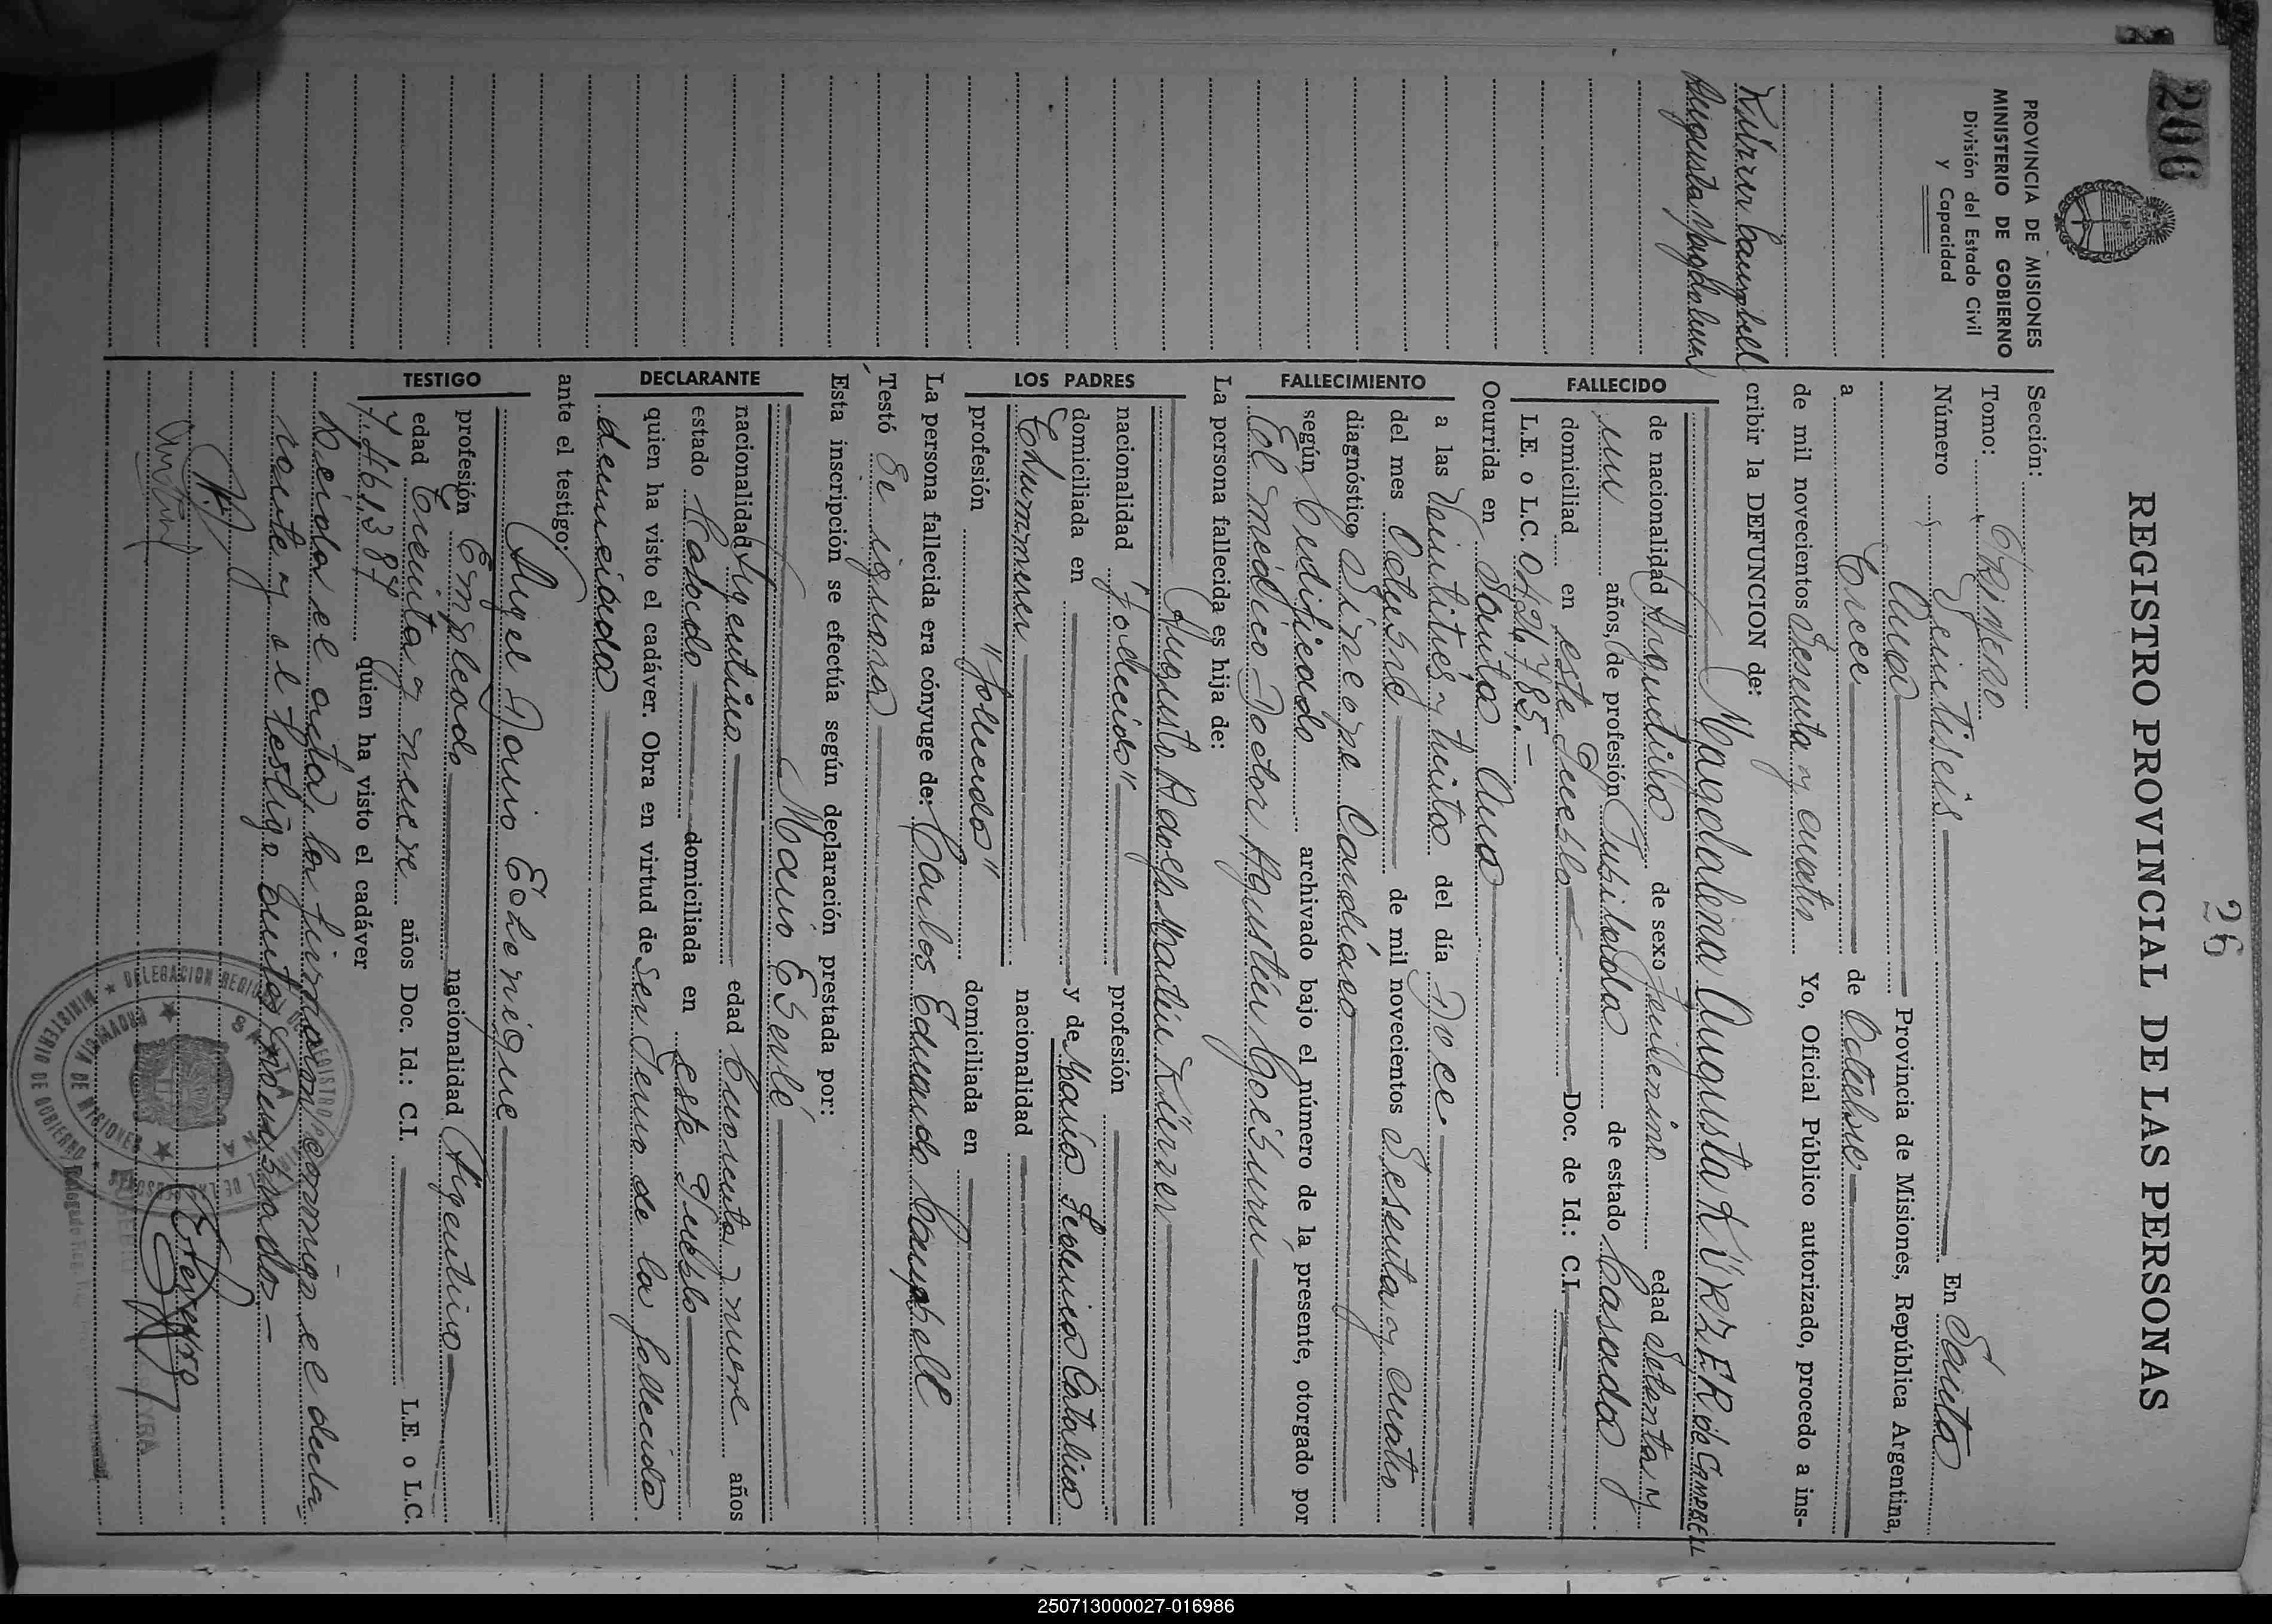 206
26
REGISTRO PROVINCIAL DE LAS PERSONAS
PROVINCIA DE MISIONES
MINISTERIO DE GOBIERNO
División del Estado Civil
y Capacidad
Kürzer Campbell
Augusta Magdalena
Sección:
Tomo: Primero
Número Veintiseis En Santa
Ana Provincia de Misiones, República Argentina,
a Trece de Octubre
de mil novecientos Sesenta y cuatro Yo, Oficial Público autorizado, procedo a ins-
cribir la DEFUNCION de:
Magdalena Augusta KÜRZER de CAMPBELL
FALLECIDO
de nacionalidad Argentina de sexo femenino edad Setenta y
un años, de profesión Jubilada de estado Casada
domiciliad en este Pueblo Doc. de Id.: C.I.
L.E. o L.C.
Ocurrida en Santa Ana
FALLECIMIENTO
a las Veintitres y treinta del día Doce
del mes Octubre de mil novecientos Sesenta y cuatro
diagnóstico Sincope Cardíaco
según Certificado archivado bajo el número de la presente, otorgado por
El médico Doctor Agustín
La persona fallecida es hija de:
Augusto Adolfo Martín Kürzer
LOS PADRES
nacionalidad "fallecido" profesión
domiciliada en y de María Federica Catalina
Thurmmer nacionalidad
profesión "fallecida" domiciliada en
La persona fallecida era cónyuge de: Carlos Eduardo Campbell
Testó Se ignora
Esta inscripción se efectúa según declaración prestada por:
Mario Eberlé
DECLARANTE
nacionalidad Argentino edad Cuarenta y nueve años
estado Casado domiciliada en este Pueblo
quien ha visto el cadáver. Obra en virtud de Ser Yerno de la fallecida
denunciada
ante el testigo:
Angel Dario Echenique
TESTIGO
profesión Empleado nacionalidad Argentino
edad Treinta y nueve años Doc. Id.: C.I. L.E. o L.C.
7.461.387 quien ha visto el cadáver
Leida el acta, la firmaron conmigo el decla
rante y el testigo antes nombrados.-
DELEGACION REGIONAL DEL REGISTRO PROVINCIAL DE LAS PERSONAS
MINISTERIO DE GOBIERNO
SANTA ANA
PROVINCIA DE MISIONES
250713000027-016986